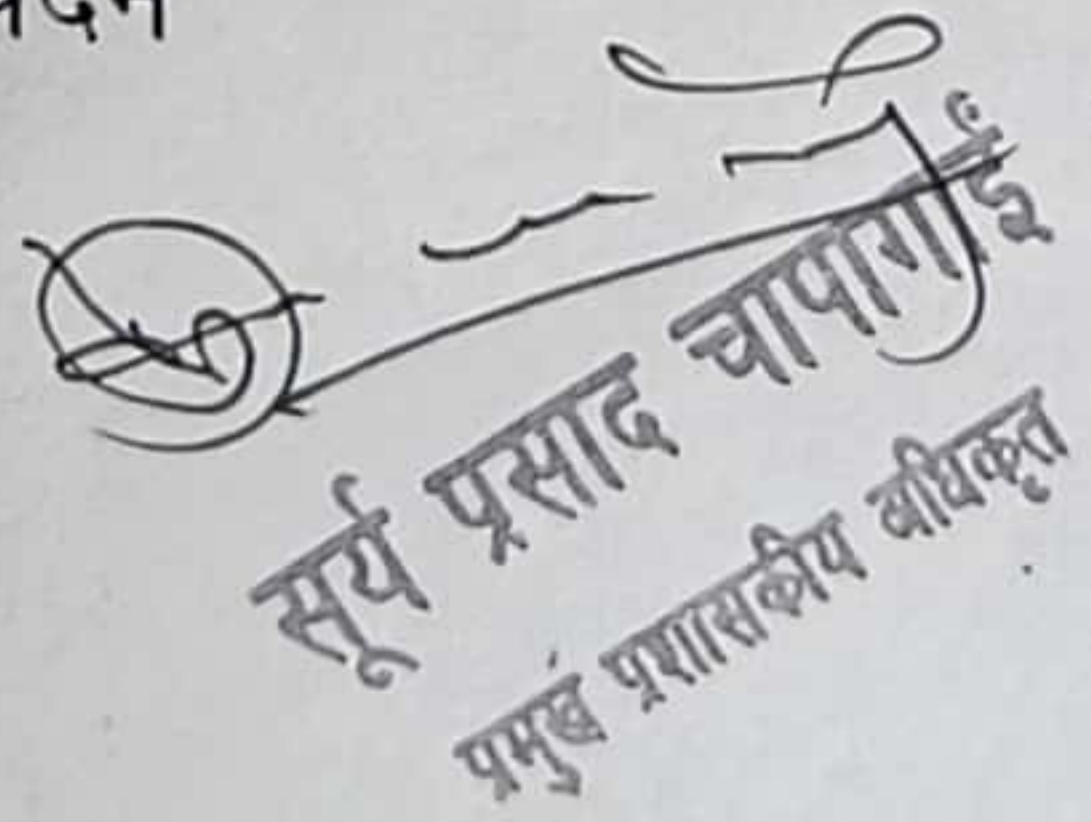 सूर्य प्रसाद चापागाईं
प्रमुख प्रशासकीय अधिकृत